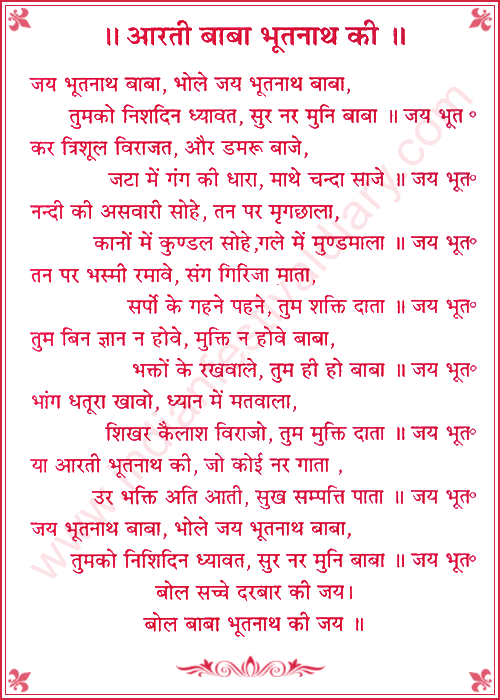 ॥ आरती बाबा भूतनाथ की ॥
जय भूतनाथ बाबा, भोले जय भूतनाथ बाबा,
तुमको निशदिन ध्यावत, सुर नर मुनि बाबा ॥ जय भूत॰
कर त्रिशूल विराजत, और डमरू बाजे,
जटा में गंग की धारा, माथे चन्दा साजे ॥ जय भूत॰
नन्दी की असवारी सोहे, तन पर मृगछाला,
कानों में कुण्डल सोहे,गले में मुण्डमाला ॥ जय भूत॰
तन पर भस्मी रमावे, संग गिरिजा माता,
सर्पो के गहने पहने, तुम शक्ति दाता ॥ जय भूत॰
तुम बिन ज्ञान न होवे, मुक्ति न होवे बाबा,
भक्तों के रखवाले, तुम ही हो बाबा ॥ जय भूत॰
भांग धतूरा खावो, ध्यान में मतवाला,
शिखर कैलाश विराजो, तुम मुक्ति दाता ॥ जय भूत॰
या आरती भूतनाथ की, जो कोई नर गाता ,
उर भक्ति अति आती, सुख सम्पत्ति पाता ॥ जय भूत॰
जय भूतनाथ बाबा, भोले जय भूतनाथ बाबा,
तुमको निशिदिन ध्यावत, सुर नर मुनि बाबा ॥ जय भूत॰
बोल सच्चे दरबार की जय।
बोल बाबा भूतनाथ की जय ॥
www.indianfestivaldiary.com